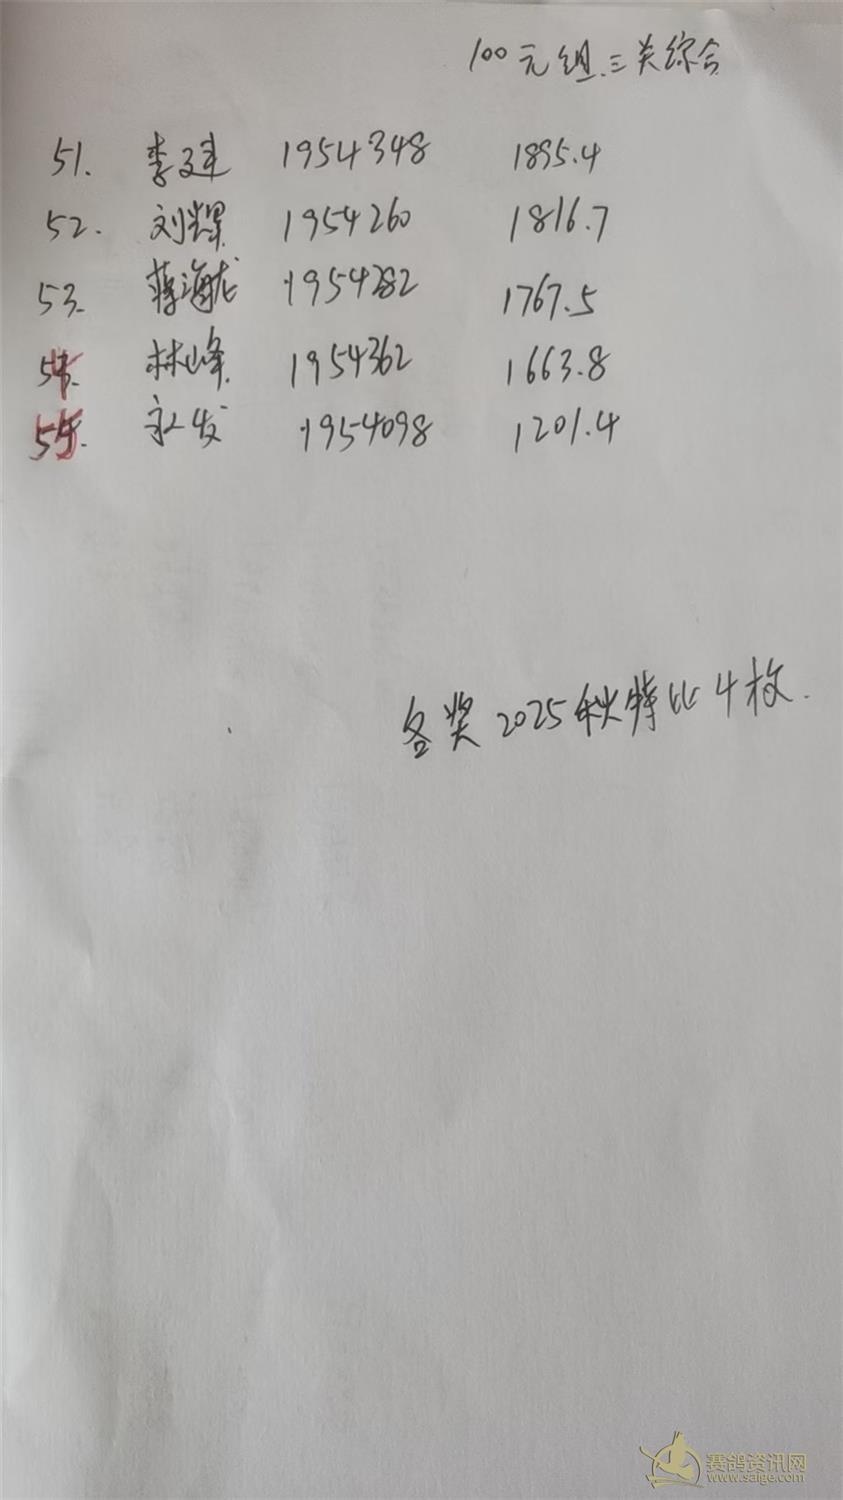 100元组.三关综合
51. 李建 1954348 1895.4
52. 刘辉 1954260 1816.7
53. 蒋海龙 1954282 1767.5
54. 林峰 1954362 1663.8
55. 永发 1954098 1201.4
各奖2025秋特比4枚.
赛鸽资讯网
www.saige.com